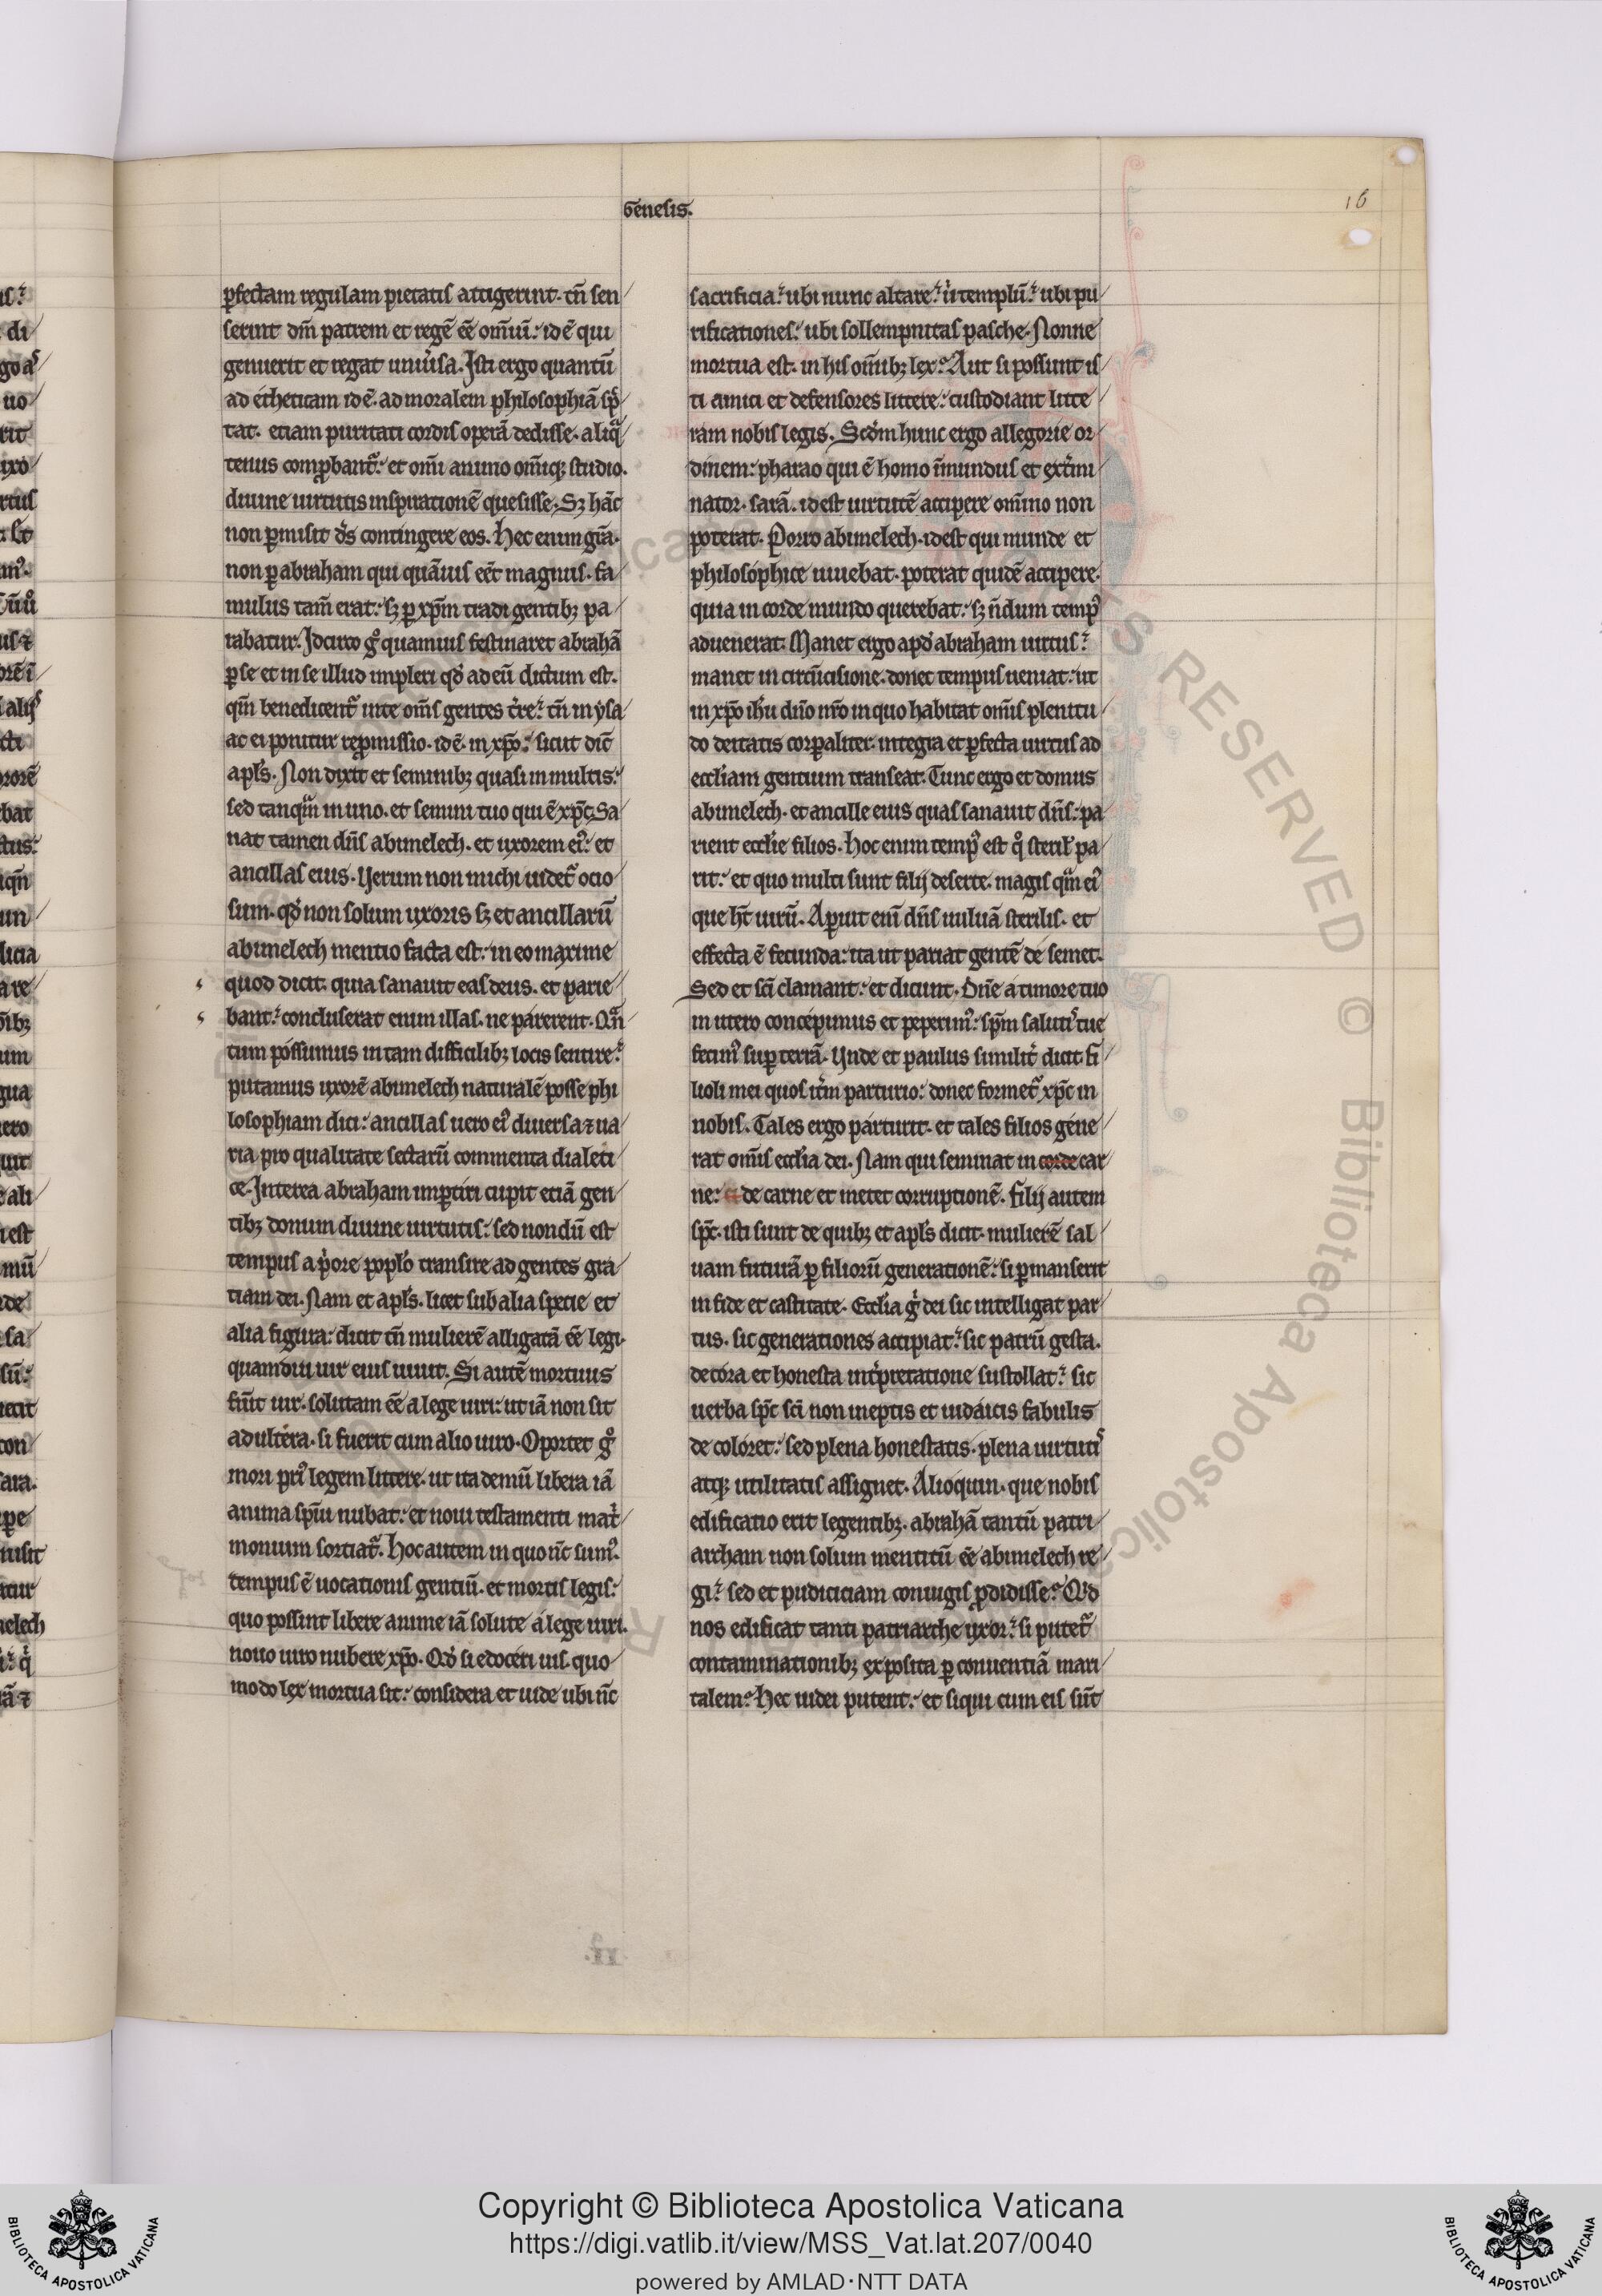 Genesis.
16
ꝑfectam regulam pietatis attigerint. tn̄ sen
serint dm̄ patrem et regē eē om̄iū: id ē qui
genuerit et regat uniũsa. Isti ergo quantū
ad etheticam id ē. ad moralem philosophiā spc̄
tat. etiam puritati cordis operā dedisse. aliq̄
tenus comꝓbant᷑: et om̄i animo om̄iqꝫ studio.
diuine uirtutis inspirationē quesisse. Sꝫ hāc
non ꝑmisit ds̄ contingere eos. Hec enim grā.
non ꝑ abraham qui quāuis eēt magnus. fa
mulus tam̄ erat: sꝫ ꝑ xpm̄ tradi gentibꝫ pa
rabatur. Idcirco gͦ quamuis festinaret abrahā
ꝑ se et in se illud impleri qd̄ ad eū dictum est.
qm̄ benedicent᷑ in te om̄s gentes tr̄re: tn̄ in ysa
ac ei ponitur reꝓmissio. id ē. in xpo̅: sicut dic̄
apls̄. Non dixit et seminibꝫ quasi in multis:
sed tanqͣm in uno. et semini tuo qui ē xpc̄. Sa
nat tamen dn̄s abimelech. et uxorem eiꝰ: et
ancillas eius. Verum non michi uidet᷑ ocio
sum. qd̄ non solum uxoris sꝫ et ancillarū
abimelech mentio facta est: in eo maxime
quod dicit. quia sanauit eas deus. et parie
bant: concluserat enim illas. ne parerent. Qn̄
tum possumus in tam difficilibꝫ locis sentire:
putamus uxorē abimelech naturalē posse phi
losophiam dici: ancillas uero eiꝰ diuersa ⁊ ua
ria pro qualitate sectarū commenta dialeti
ce. Interea abraham imꝑtiri cupit etiā gen
tibꝫ donum diuine uirtutis: sed nondū est
tempus a p̄ore poplo̅ transire ad gentes gra
tiam dei. Nam et apls̄. licet sub alia specie et
alia figura: dicit tn̄ mulierē alligatā eē legi.
quamdiu uir eius uiuit. Si autē mortuus
fūit uir. solutam eē a lege uiri: ut iā non sit
adultera. si fuerit cum alio uiro. Oportet gͦ
mori priꝰ legem littere. ut ita demū libera iā
anima spiu̅ nubat: et noui testamenti mat̄
monium sortiat᷑. Hoc autem in quo nc̄ sumꝰ.
tempus ē uocationis gentiū. et mortis legis:
quo possint libere anime iā solute a lege uiri.
nouo uiro nubere xpo̅. Qd̄ si edoceri uis. quo
modo lex mortua sit: considera et uide ubi nc̄
sacrificia: ubi nunc altare: u̇ templū: ubi pu
rificationes: ubi sollempnitas pasche. Nonne
mortua est. in his om̄ibꝫ lex: Aut si possunt is
ti amici et defensores littere: custodiant litte
ram nobis legis. Scdm̄ hunc ergo allegorie or
dinem: pharao qui ē homo īmundus et ext̄mi
nator. sarā. id est uirtutē accipere om̄ino non
poterat. Porro abimelech. id est qui munde et
philosophice uiuebat. poterat quidē accipere.
quia in corde mundo querebat: sꝫ n̄dum tempꝰ
aduenerat. Manet ergo apd̄ abraham uirtus:
manet in circūcisione. donec tempus ueniat. ut
in xpo̅ ihu̅ dn̄o nr̄o in quo habitat om̄is plenitu
do deitatis corꝑaliter. integra et ꝑfecta uirtus ad
eccliam gentium transeat. Tunc ergo et domus
abimelech. et ancille eius quas sanauit dn̄s: pa
rient ecclie filios. Hoc enim tempꝰ est qͦ steril̄ pa
rit: et quo multi sunt filij deserte. magis qͣm eiꝰ
que ht̄ uirū. Aꝑuit enī dn̄s uuluā sterilis. et
effecta ē fecunda: ita ut pariat gentē de semet.
Sed et sci̅ clamant: et dicunt. Dn̄e a timore tuo
in utero concepimus et peperimꝰ: spm̄ salutiꝰ tue
fecimꝰ suꝑ terrā. Vnde et paulus similit̄ dicit. fi
lioli mei quos it̄m parturio: donec formet᷑ xpc̄ in
nobis. Tales ergo parturit. et tales filios gene
rat om̄is ecclia dei. Nam qui seminat in corde car
ne: de carne et metet corruptionē. Filij autem
spc̄. isti sunt de quibꝫ et apls̄ dicit. mulierē sal
uam futurā ꝑ filiorū generationē: si ꝑmanserit
in fide et castitate. Ecclia g̊ dei sic intelligat par
tus. sic generationes accipiat: sic patrū gesta.
decora et honesta int̄pretatione sustollat: sic
uerba spc̄ sci̅ non ineptis et iudaicis fabulis
de coloret: sed plena honestatis. plena uirtutiꝰ
atqꝫ utilitatis assignet. Alioquin. que nobis
edificatio erit legentibꝫ. abrahā tantū patri
archam non solum mentitū eē abimelech re
gi: sed et pudiciciam coniugis ꝓdidisse: Qd̄
nos edificat tanti patriarche uxor: si putet᷑
contaminationibꝫ exposita ꝑ conuentiā mari
talem: Hec iudei putent: et siqui cum eis sūt
Copyright © Biblioteca Apostolica Vaticana
https://digi.vatlib.it/view/MSS_Vat.lat.207/0040
powered by AMLAD·NTT DATA
BIBLIOTECA APOSTOLICA VATICANA
BIBLIOTECA APOSTOLICA VATICANA